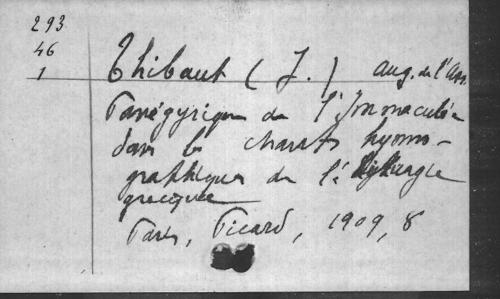 293
46
1
Thibaut (J.) aug. de l'Ass.
Panégyrique de l'Immaculée
dans les chants hymno-
graphiques de l' liturgie
grecque
Paris, Picard, 1909, 8